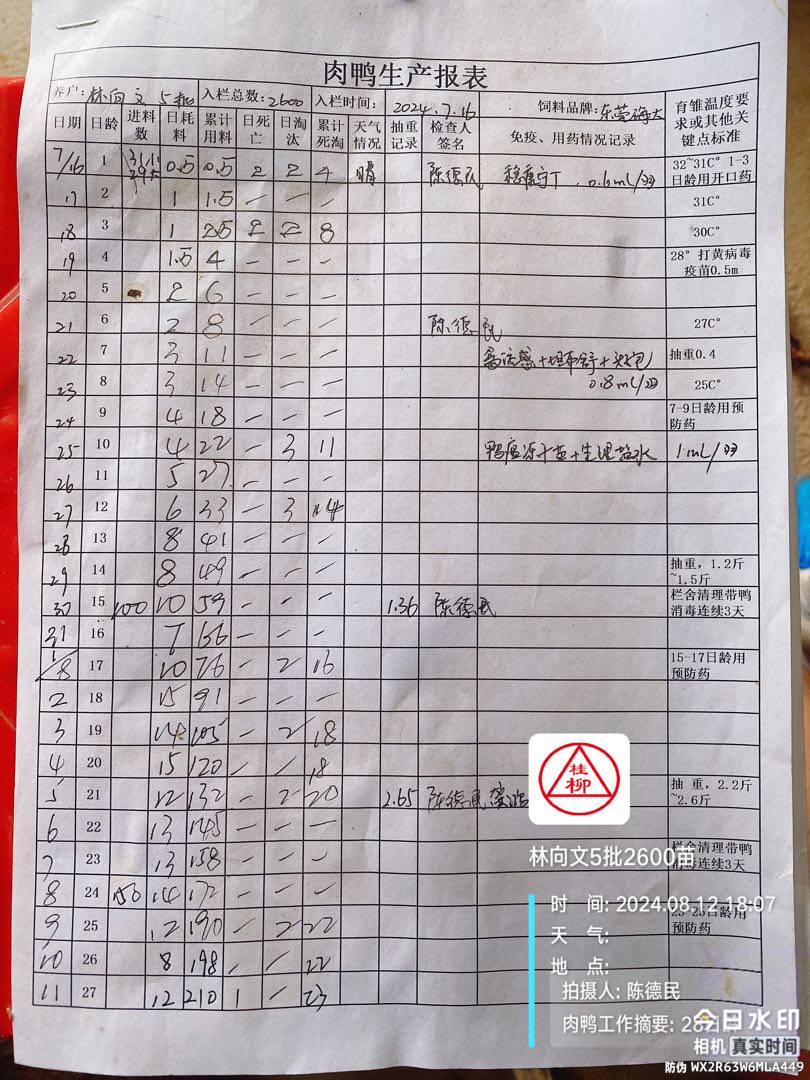 肉鸭生产报表
养户:林向文 5批 入栏总数:2600 入栏时间: 2024.7.16 饲料品牌:东莞海大 育雏温度要求或其他关键点标准
日期 日龄 进料数 日耗料 累计用料 日死亡 日淘汰 累计死淘 天气情况 抽重记录 检查人签名 免疫、用药情况记录
7/16 1 0.5 0.5 2 2 4 晴 陈德民 0.6ml/羽 32~31C° 1-3日龄用开口药
17 2 1 1.5 - - - 31C°
18 3 1 2.5 2 2 8 30C°
19 4 1.5 4 - - - 28° 打黄病毒疫苗0.5m
20 5 2 6 - - -
21 6 2 8 - - - 陈德民 27C°
22 7 3 11 - - - 抽重0.4
23 8 3 14 - - - 0.8ml/羽 25C°
24 9 4 18 - - - 7-9日龄用预防药
25 10 4 22 - 3 11 鸭瘟冻干苗+生理盐水 1ml/羽
26 11 5 27 - - -
27 12 6 33 - 3 14
28 13 8 41 - - -
29 14 8 49 - - - 抽重,1.2斤~1.5斤
30 15 100 10 59 - - - 1.36 陈德民 栏舍清理带鸭消毒连续3天
31 16 7 66 - - -
1/8 17 10 76 - 2 16 15-17日龄用预防药
2 18 15 91 - - -
3 19 14 105 - 2 18
4 20 15 120 - - 18
5 21 12 132 - 2 20 2.65 陈德民 抽 重,2.2斤~2.6斤
6 22 13 145 - - -
7 23 13 158 - - - 栏舍清理带鸭消毒连续3天
8 24 150 14 172 - - -
9 25 12 190 - 2 22 日龄用预防药
10 26 8 198 - - 22
11 27 12 210 1 - 23
桂柳
林向文5批2600苗
时 间: 2024.08.12 18:07
天 气:
地 点:
拍摄人: 陈德民
肉鸭工作摘要: 28日
今日水印
相机 真实时间
防伪 WX2R63W6MLA449